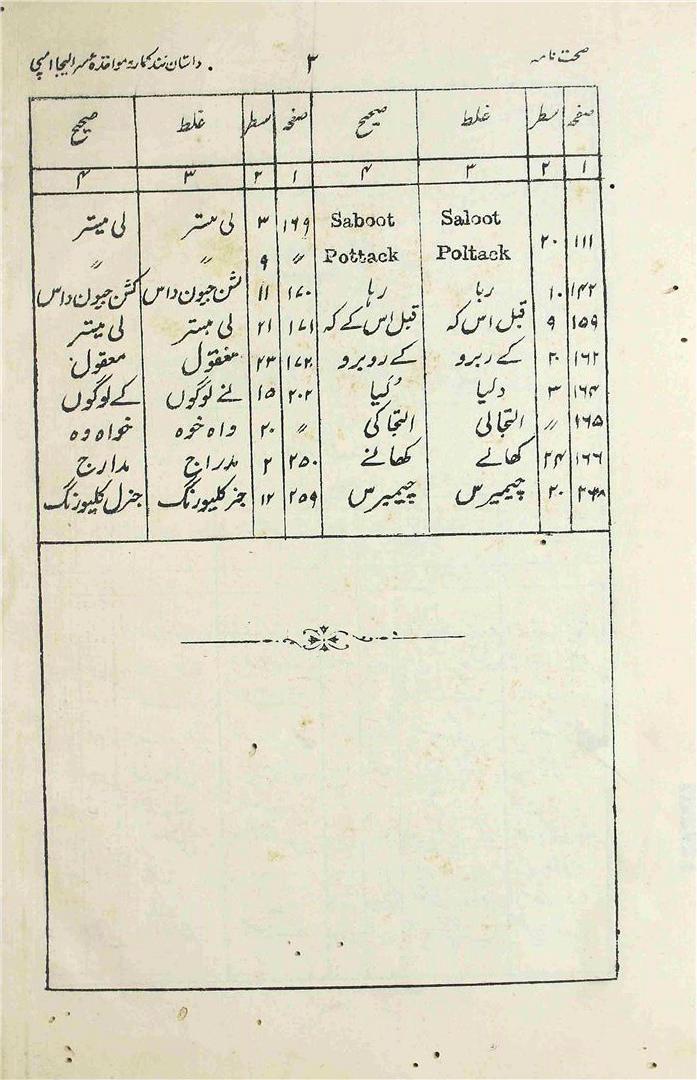 صحت نامہ ۳ داستان نند کمار و مواخذۂ سر الیجا امپی
صفحہ سطر غلط صحیح صفحہ سطر غلط صحیح
۱ ۲ ۳ ۴ ۱ ۲ ۳ ۴
۱۱۱ ۲۰ Saloot Saboot ۱۶۹ ۳ لی مستر لی میستر
Poltack Pottack 〃 ۹ 〃 〃
۱۴۲ ۱۰ ربا رہا ۱۷۰ ۱۱ شن جیون داس کشن جیون داس
۱۵۹ ۹ قبل اس کہ قبل اس کے کہ ۱۷۱ ۲۱ لی مبستر لی میستر
۱۶۲ ۲۰ کے ربرو کے روبرو ۱۷۲ ۲۳ مغقول معقول
۱۶۴ ۳ دگیا گیا ۲۰۲ ۱۵ لئے لوگوں کے لوگوں
۱۶۵ 〃 التجالی التجا کی 〃 ۲۰ واہ خوہ خواہ وہ
۱۶۶ ۲۴ کھالے کھانے ۲۵۰ ۲ مدراج مدارج
۲۶۸ ۲۰ چیمیرس چیمبرس ۲۵۹ ۱۲ جنر کلیورنگ جنرل کلیورنگ